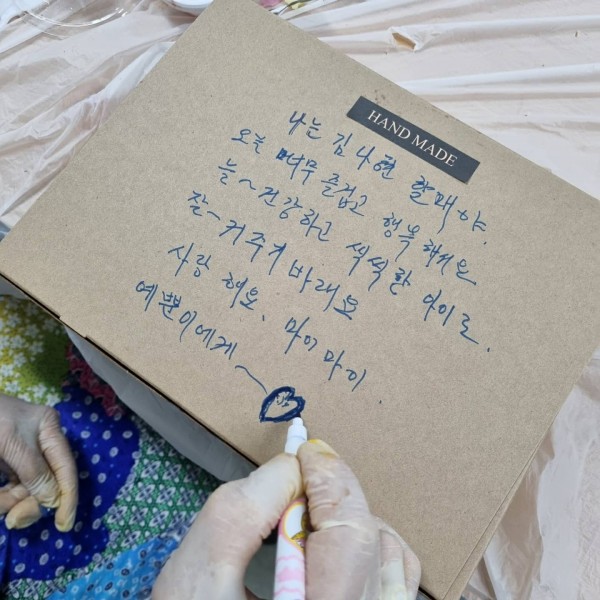 HAND MADE
나는 김나현 할매야.
오늘 너무 즐겁고 행복해지요
늘~건강하고 씩씩한 아이로.
잘~커주기 바래요
사랑해요. 마이마이
예쁜이에게~